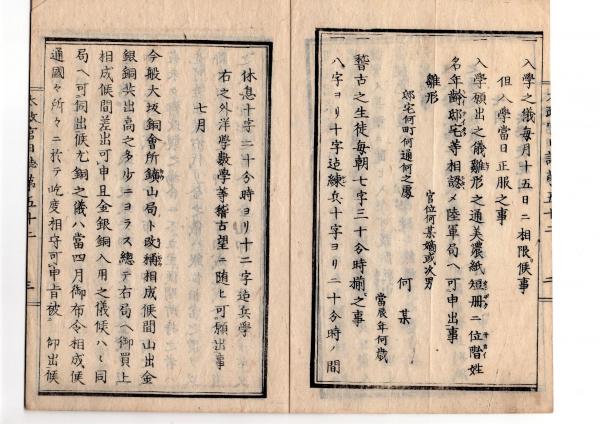 一 入學之儀毎月十五日ニ相限候事
但入學當日正服之事
一 入學願出之儀雛形之通美濃紙短册ニ位階姓
名年齡邸宅等相認メ陸軍局ヘ可申出事
雛形
官位何某嫡或次男
何某
當辰年何歳
邸宅何町何通何之處
一 稽古之生徒毎朝七字三十分時揃之事
一 八字ヨリ十字迄練兵十字ヨリ二十分時ノ間
休息十字二十分時ヨリ十二字迄兵學
右之外洋學數學等稽古望ニ随ヒ可願出事
七月
今般大坂銅會所鑛山局ト改稱相成候間山出金
銀銅共出高之多少ニヨラス總テ右局ヘ御買上
相成候間差出可申且金銀銅入用之儀候ハヽ同
局ヘ可伺出候尤銅之儀ハ當四月御布令相成候
通國々所々ニ於テ屹度相守可申旨被 仰出候
太政官日誌第五十二